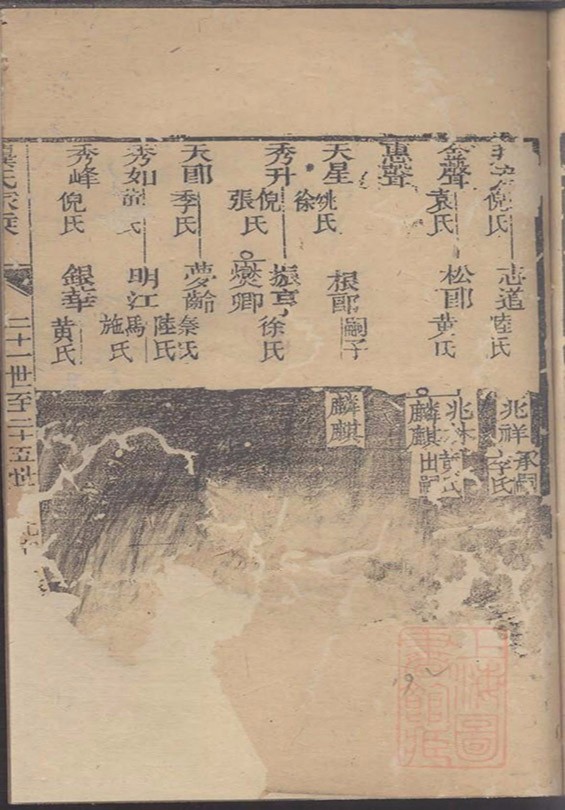 倪氏
志道 陸氏
兆祥 李氏 承嗣
金聲 袁氏
松郎 黄氏
兆林
麟麒 出嗣
惠聲
天星 姚氏 徐
根郎 嗣子
麟麒
秀升 倪氏 張氏
振亨 徐氏
燮卿
天郎 季氏
夢齡 秦氏 陸氏
秀如 氏
明江 馬氏 施氏
秀峰 倪氏
銀華 黄氏
氏家乘
二十一世至二十五世
上海圖書館藏